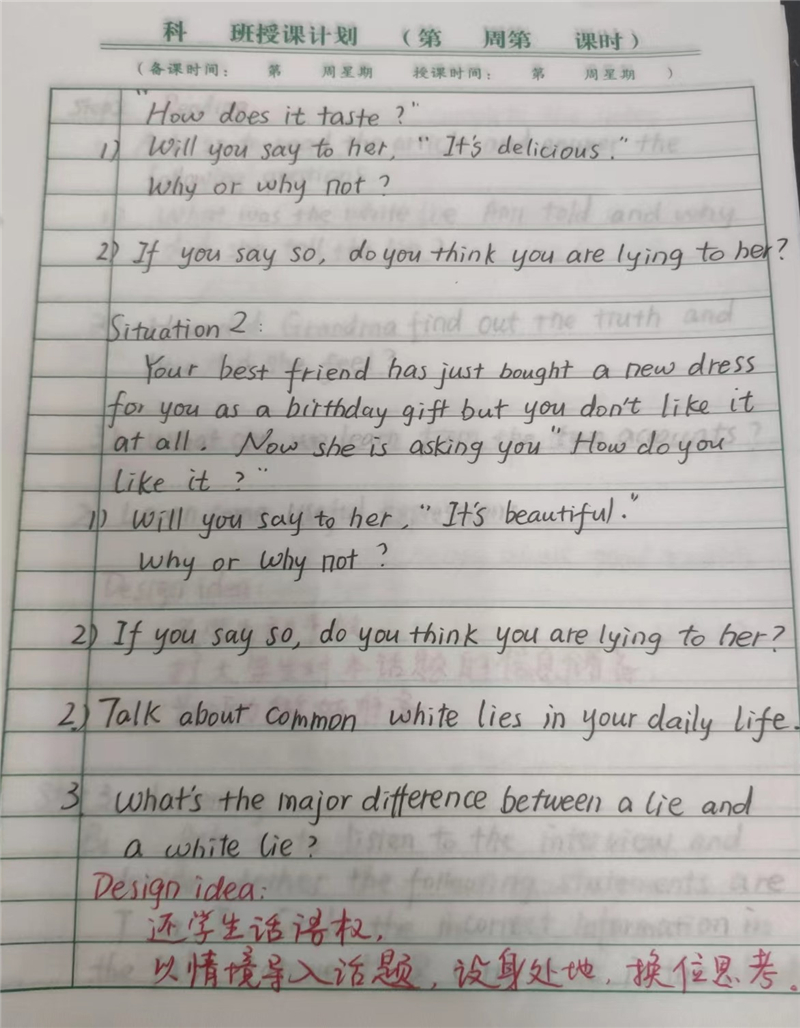 科 班授课计划 （第 周第 课时）
（备课时间： 第 周星期 授课时间： 第 周星期 ）
"How does it taste ?"
1) Will you say to her, "It's delicious."
Why or why not ?
2) If you say so, do you think you are lying to her?
Situation 2 :
Your best friend has just bought a new dress
for you as a birthday gift but you don't like it
at all. Now she is asking you "How do you
like it ?"
1) Will you say to her, "It's beautiful."
Why or why not ?
2) If you say so, do you think you are lying to her?
2.) Talk about common white lies in your daily life.
3 What's the major difference between a lie and
a white lie?
Design idea:
还学生话语权,
以情境导入话题, 设身处地, 换位思考.